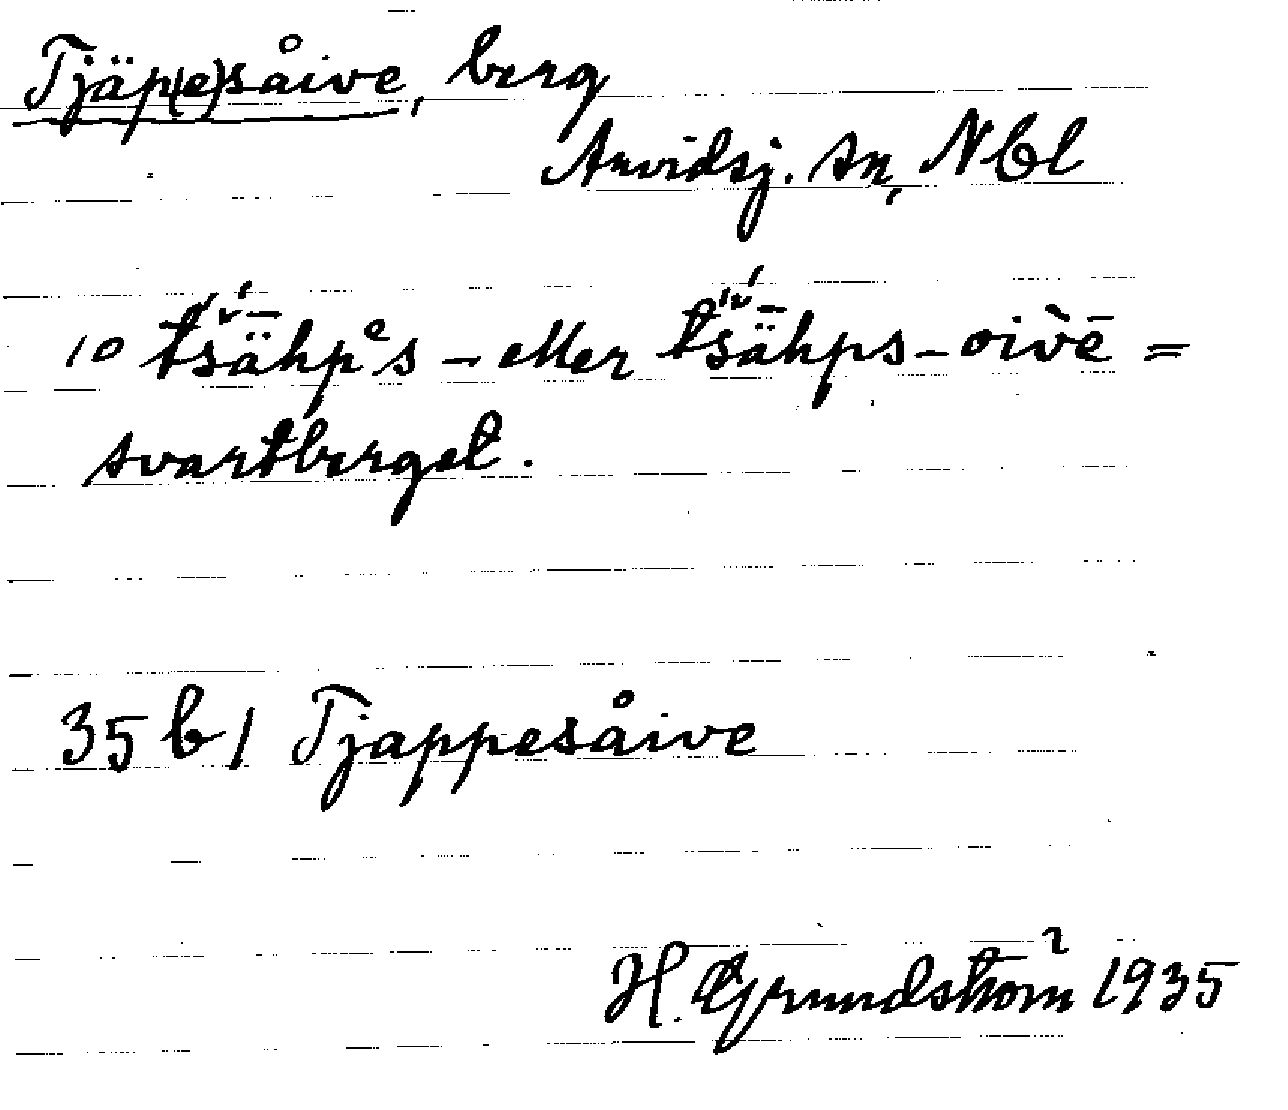 Tjäp(e)såive, berg
Arvidsj. sn, Nbl
10 tsǟhpᵉs - eller tsǟhps-oivē =
svartberget.
35 b1 Tjappesåive
H. Grundström 1935